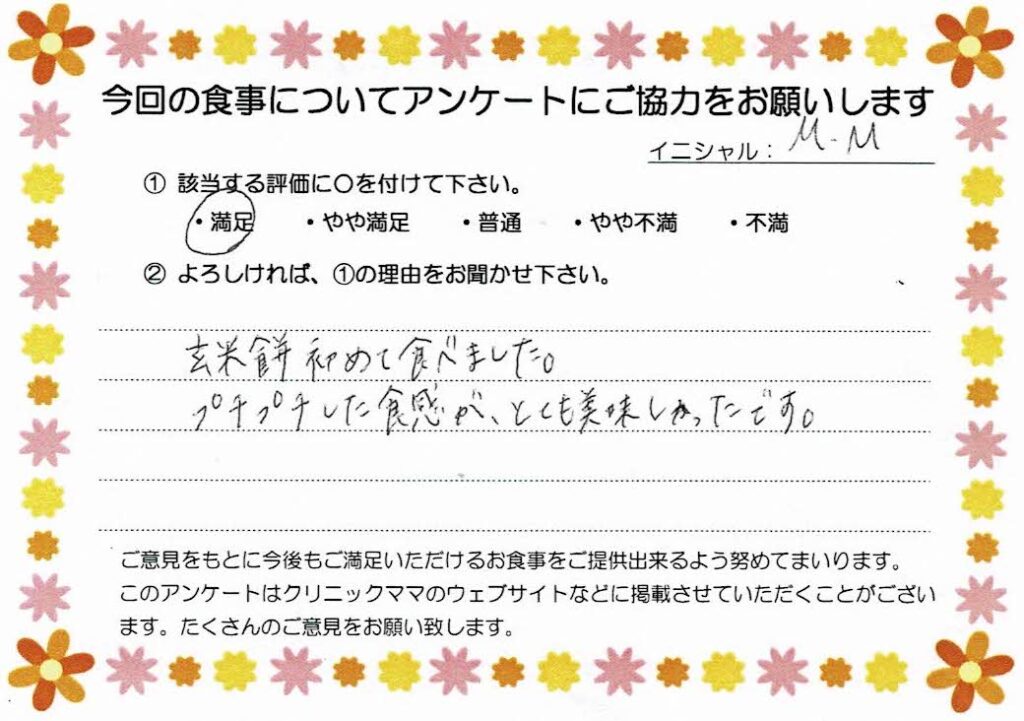 今回の食事についてアンケートにご協力をお願いします
イニシャル： M.M
① 該当する評価に〇を付けて下さい。
・満足　・やや満足　・普通　・やや不満　・不満
② よろしければ、①の理由をお聞かせ下さい。
玄米餅初めて食べました。
プチプチした食感が、とても美味しかったです。
ご意見をもとに今後もご満足いただけるお食事をご提供出来るよう努めてまいります。
このアンケートはクリニックママのウェブサイトなどに掲載させていただくことがござい
ます。たくさんのご意見をお願い致します。